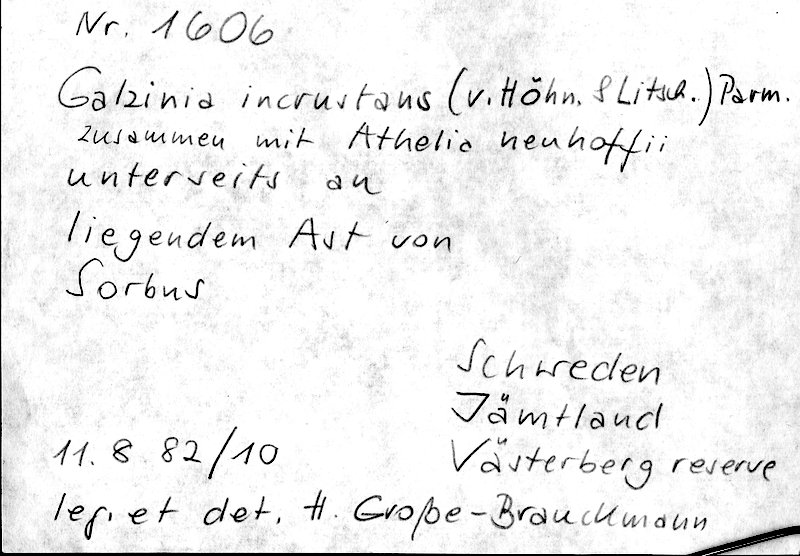 Nr. 1606
Galzinia incrustans (v. Höhn. & Litsch.) Parm.
zusammen mit Athelia neuhoffii
unterseits an
liegendem Ast von
Sorbus
Schweden
Jämtland
Västerberg reserve
11. 8 82/10
leg. et det. H. Große-Brauckmann